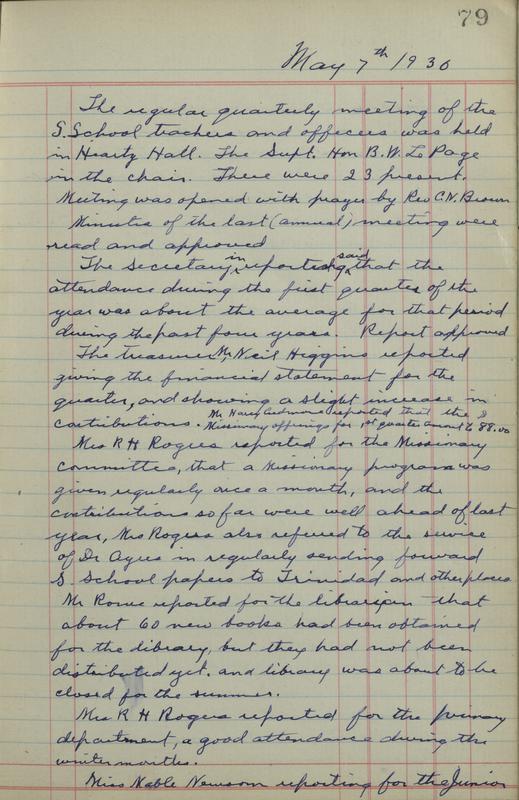 79
May 7th 1930
The regular quarterly meeting of the
S. School teachers and officers was held
in Hearty Hall. The Supt. Hon B. W. Le Page
in the chair. There were 23 present.
Meeting was opened with prayer by Rev C. N. Brown
Minutes of the last (annual) meeting were
read and approved
The Secretary in reporting said that the
attendance during the first quarter of the
year was about the average for that period
during the past four years. Report approved
The treasurer Mr Neil Higgins reported
giving the financial statement for the
quarter, and showing a slight increase in
contributions. Mr Harry reported that the $
Missionary offerings for 1st quarter amount to 88.00
Mrs R H Rogers reported for the Missionary
Committee, that a Missionary program was
given regularly once a month, and the
contributions so far were well ahead of last
year, Mrs Rogers also referred to the service
of Dr Ayers in regularly sending forward
S. School papers to Trinidad and other places
Mr reported for the librarian that
about 60 new books had been obtained
for the library, but they had not been
distributed yet. and library was about to be
closed for the summer.
Mrs R H Rogers reported for the primary
department, a good attendance during the
winter months.
Miss Mable Newsom reporting for the Junior